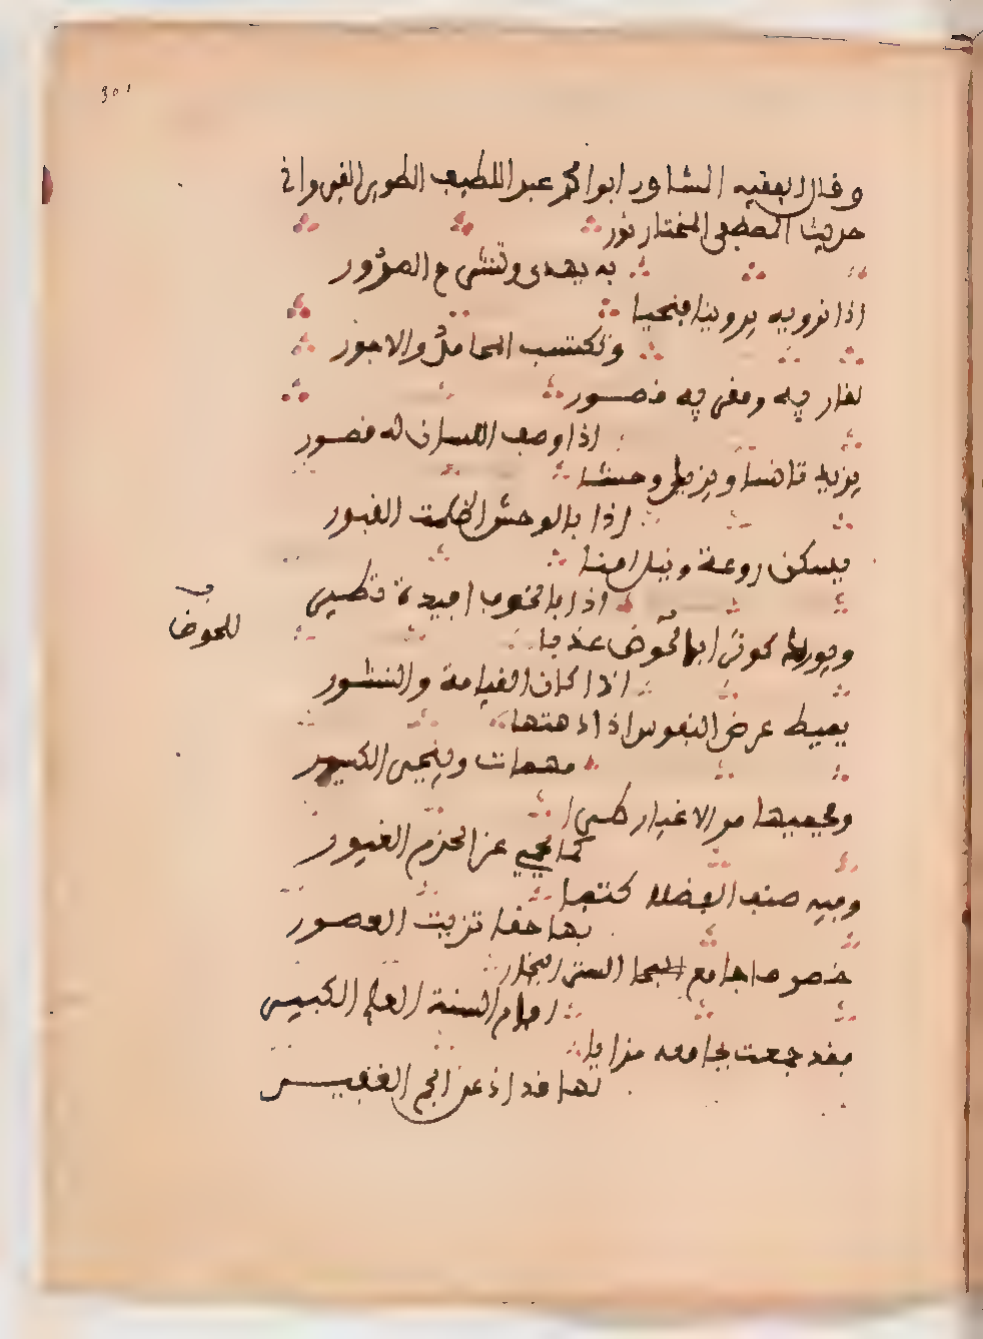 301
وقال الفقيه المشاور ابو محمد عبد اللطيف الطوير القيرواني
حديث المصطفى المختار نور
به يهدى وتنشرح الصدور
اذا نرويه يروينا فنحيا
ونكتسب المحامد والاجور
لقار فيه ومقر فيه
اذا وصف اللسان له قصور
يزيد تانسا ويزيل وحشا
اذا بالوحش اظلمت القبور
فيسكن روعة وينيل امنا
اذا بالخوف افيدة تطير
ويورد الحوض عذبا
للحوض
اذا كان القيامة والنشور
يميط عرض النفوس اذا دهتها
مهمات وينجبر الكسير
ويحميها من الاغيار طرا
كما يحمي عن الحرم الغيور
وفيه صنف الفضلا كتبا
بها حقا تزينت العصور
خصوصا جامع البخار
امام السنة العلم الكبير
فقد جمعت بجامعه مزايا
لها قد اذعن الجم الغفير